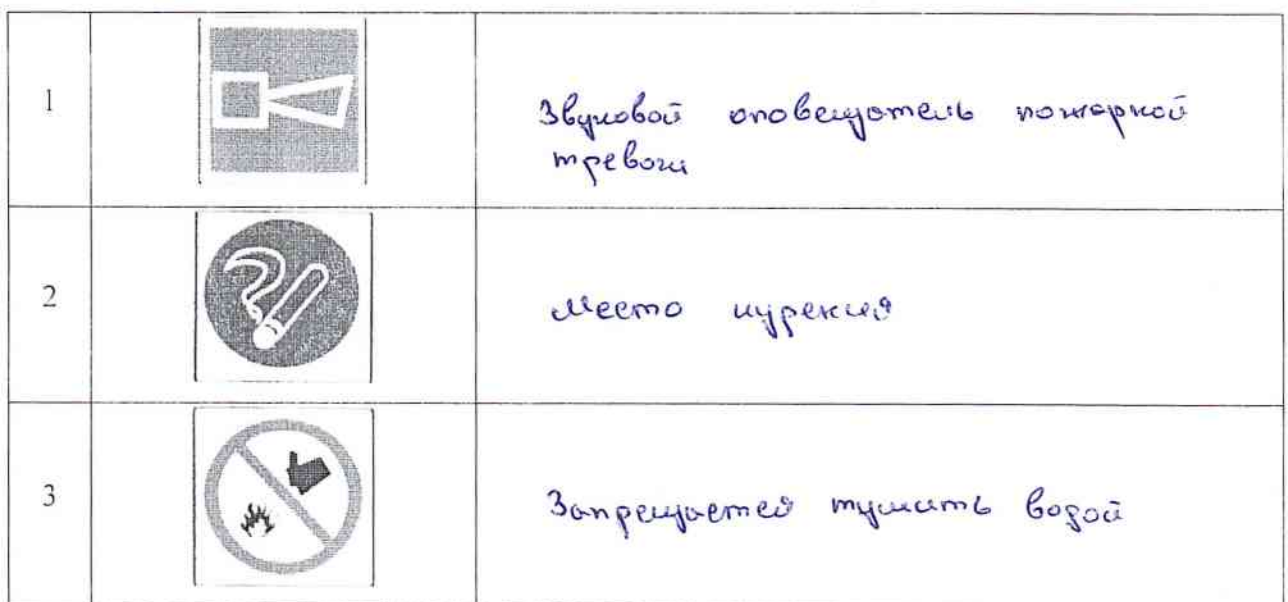 1
Звуковой оповещатель пожарной
тревоги
2
Место курения
3
Запрещается тушить водой